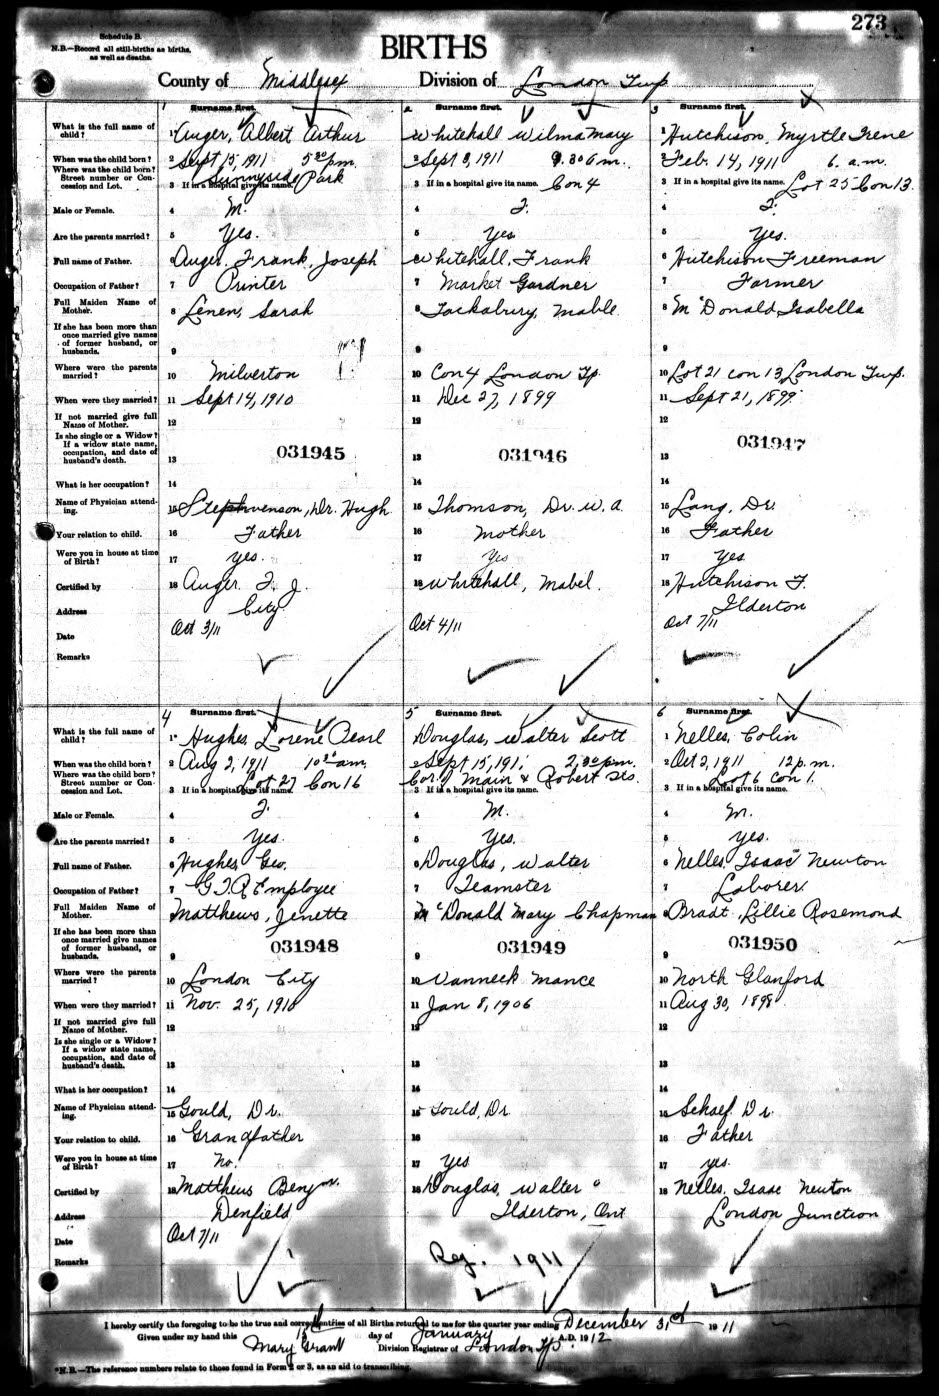 273
Schedule B.
N.B.—Record all still-births as births, as well as deaths.
BIRTHS
County of Middlesex Division of London Twp
1 Surname first. 2 Surname first. 3 Surname first.
What is the full name of child? 1 Auger, Albert Arthur Whitehall Wilma Mary 1 Hutchison, Myrtle Irene
When was the child born? 2 Sept 15, 1911 5 30 p.m. 2 Sept 3, 1911 9.30 a.m. 2 Feb. 14, 1911 6. a.m.
Where was the child born? Street number or Concession and Lot. 3 If in a hospital give its name. Sunnyside Park 3 If in a hospital give its name. Con 4 3 If in a hospital give its name. Lot 25 Con 13.
Male or Female. 4 M. 4 F. 4 F.
Are the parents married? 5 Yes. 5 Yes 5 Yes.
Full name of Father. 6 Auger, Frank, Joseph Whitehall, Frank 6 Hutchison Freeman
Occupation of Father? 7 Printer 7 Market Gardner 7 Farmer
Full Maiden Name of Mother. 8 Lenen, Sarah 8 Tackabury, Mable 8 McDonald Isabella
If she has been more than once married give names of former husband, or husbands. 9 9 9
Where were the parents married? 10 Milverton 10 Con 4 London Tp. 10 Lot 21 con 13, London Twp.
When were they married? 11 Sept 14, 1910 11 Dec 27, 1899 11 Sept 21, 1899
If not married give full Name of Mother. 12 12 12
Is she single or a Widow? If a widow state name, occupation, and date of husband's death. 13 031945 13 031946 13 031947
What is her occupation? 14 14 14
Name of Physician attending. 15 Stephvenson, Dr. Hugh 15 Thomson, Dr. W. A. 15 Lang, Dr.
Your relation to child. 16 Father 16 Mother 16 Father
Were you in house at time of Birth? 17 yes. 17 Yes 17 Yes
Certified by 18 Auger, F. J. 18 Whitehall, Mabel. 18 Hutchison F.
Address City Ilderton
Date Oct 3/11 Oct 4/11 Oct 7/11
Remarks
4 Surname first. 5 Surname first. 6 Surname first.
What is the full name of child? 1 Hughes, Lorene Pearl Douglas, Walter Scott 1 Nelles, Colin
When was the child born? 2 Aug 2, 1911 10 30 a.m. 2 Sept 15, 191 2.30 p.m. 2 Oct 2, 1911 12 p.m.
Where was the child born? Street number or Concession and Lot. 3 If in a hospital give its name Lot 27 Con 16 Cor. of Main & Robert Sts. 3 If in a hospital give its name. Lot 6 con 1. 3 If in a hospital give its name.
Male or Female. 4 F. 4 M. 4 M.
Are the parents married? 5 Yes. 5 Yes. 5 yes.
Full name of Father. 6 Hughes, Geo. 6 Douglas, Walter 6 Nelles, Isaac Newton
Occupation of Father? 7 G.T.R. Employee 7 Teamster 7 Laborer
Full Maiden Name of Mother. Matthews, Jenette McDonald Mary Chapman 8 Bradt, Lillie Rosemond
If she has been more than once married give names of former husband, or husbands. 9 031948 9 031949 9 031950
Where were the parents married? 10 London City 10 Vanneck Mance 10 North Glanford
When were they married? 11 Nov. 25, 1910 11 Jan 8, 1906 11 Aug 30, 1898
If not married give full Name of Mother. 12 12 12
Is she single or a Widow? If a widow state name, occupation, and date of husband's death. 13 13 13
What is her occupation? 14 14 14
Name of Physician attending. 15 Gould, Dr. 15 Gould, Dr. 15 Schaef Dr.
Your relation to child. 16 Grandfather 16 16 Father
Were you in house at time of Birth? 17 no. 17 Yes 17 yes.
Certified by 18 Matthews Benj'n. 18 Douglas, Walter 18 Nelles, Isaac Newton
Address Denfield Ilderton, Ont London Junction
Date Oct 7/11
Remarks Reg. 1911
I hereby certify the foregoing to be the true and correct entries of all Births returned to me for the quarter ending December 31st 1911
Given under my hand this day of January A.D. 1912
Mary Grant Division Registrar of London Tp.
*N.B.—The reference numbers relate to those found in Form 2 or 3, as an aid to transcribing.